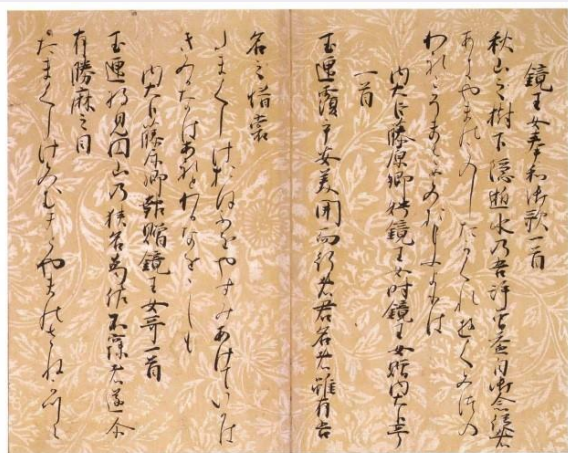 鏡王女奉和御歌一首
秋山之樹下隠逝水乃吾許曽益目御念従者
あきやまのこのしたかくれゆくみつの
われこそまさめおもふよりは
内大臣藤原卿娉鏡王女時鏡王女贈内大臣哥
一首
玉匣覆乎安美開而行者君名者雖有吾
名之惜裳
たまくしけおほふをやすみあけていかは
きみかなはあれとわかなをしも
内大臣藤原卿報贈鏡王女哥一首
玉匣将見円山乃狭名葛佐不寐者遂尓
有勝麻之目
たまくしけみむまとやまのさねかつら